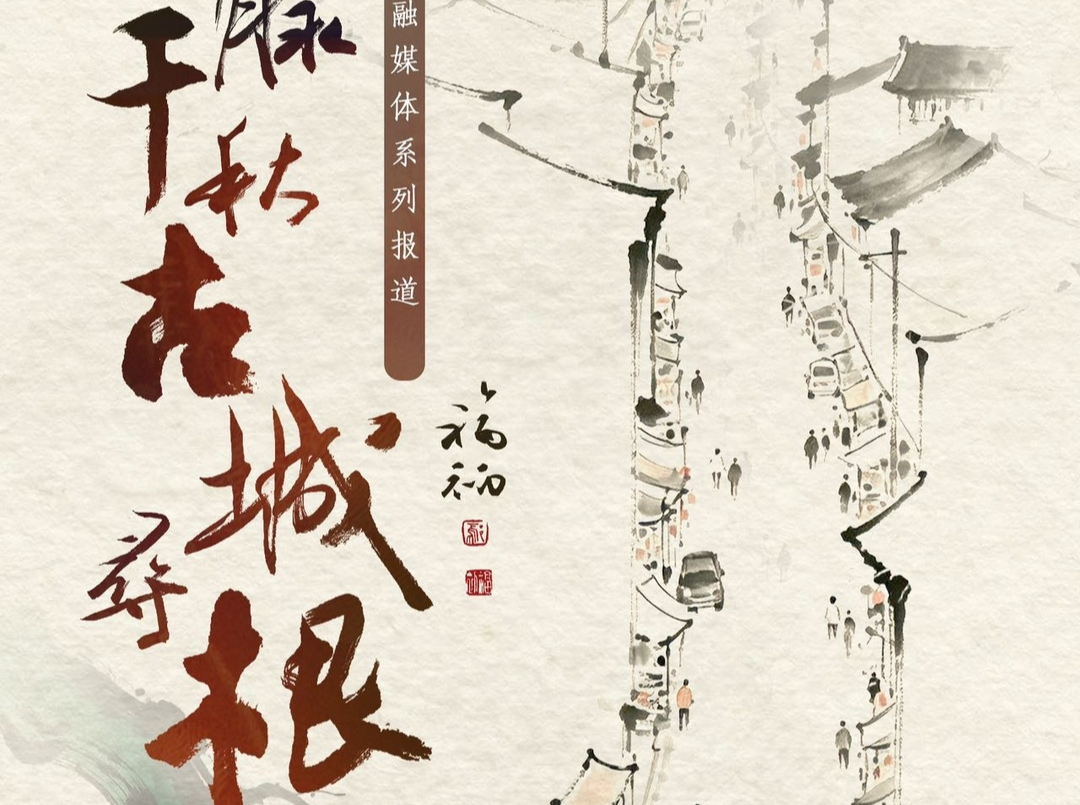 脉千秋
古城
尋根
融媒体系列报道